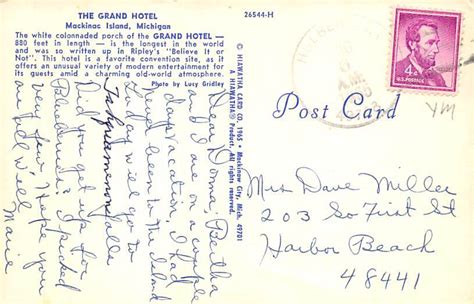 THE GRAND HOTEL
Mackinac Island, Michigan
The white colonnaded porch of the GRAND HOTEL —
880 feet in length — is the longest in the world
and was so written up in Ripley's "Believe It or
Not". This hotel is a favorite convention site, as it
offers an unusual variety of modern entertainment for
its guests amid a charming old-world atmosphere.
Photo by Lucy Gridley
26544-H
© HIAWATHA CARD CO. 1965 • Mackinaw City, Mich. 49701
A HIAWATHA® Product. All rights reserved.
Dear Donna, Bertha
and I are on a couple
days vacation, I had
never been to the Island
Today will go to
Tahquamenon falls
Did you get up for
Blueberries? I picked
very few. Hope your
all well
Marie
4¢
U.S. POSTAGE
Post Card
Mrs Dave Miller
203 So First St
Harbor Beach
48441